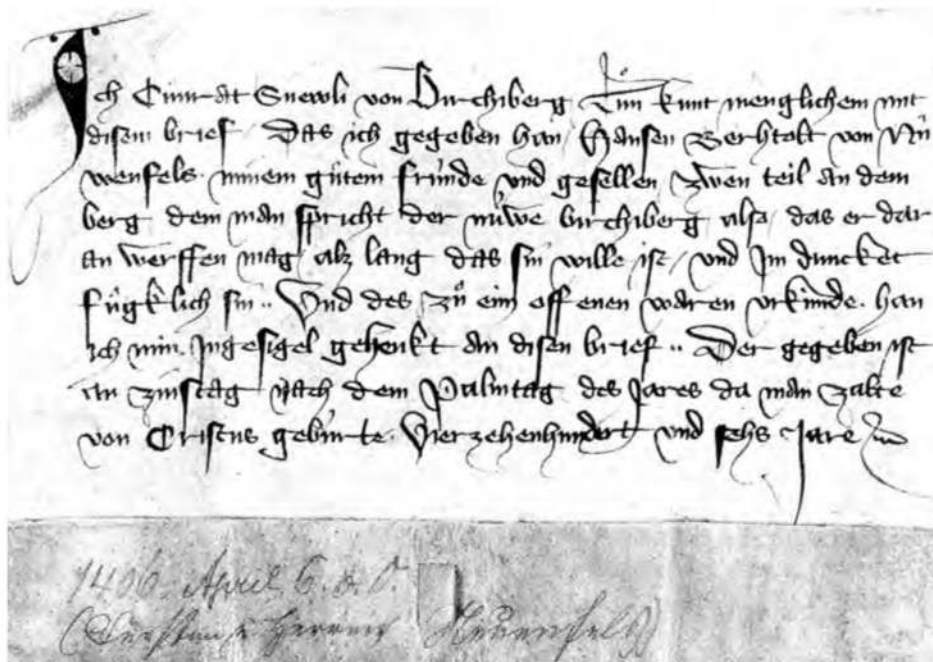 Ich Cunrat Snewli von Birchiberg Tun kunt menglichem mit
disem brief / Das ich gegeben han / Hansen Berhtolt von Nü
wenfels minem gůtem fründe vnd gesellen / zwen teil an dem
berg dem man spricht der nüwe birchiberg also / das er dar
an werffen mag / alz lang das sin wille ist / vnd Jm duncket
fügklich sin .. Vnd des zů eim offenen waren vrkünde . han
ich min Jngesigel gehenkt an disen brief .. Der gegeben ist
an zinstag nach dem Palmtag des Jares da man zalte
von Cristus gebürte . Vierzehenhundert vnd sehs Jare
1406 April 6. d. d.
Neuenfels